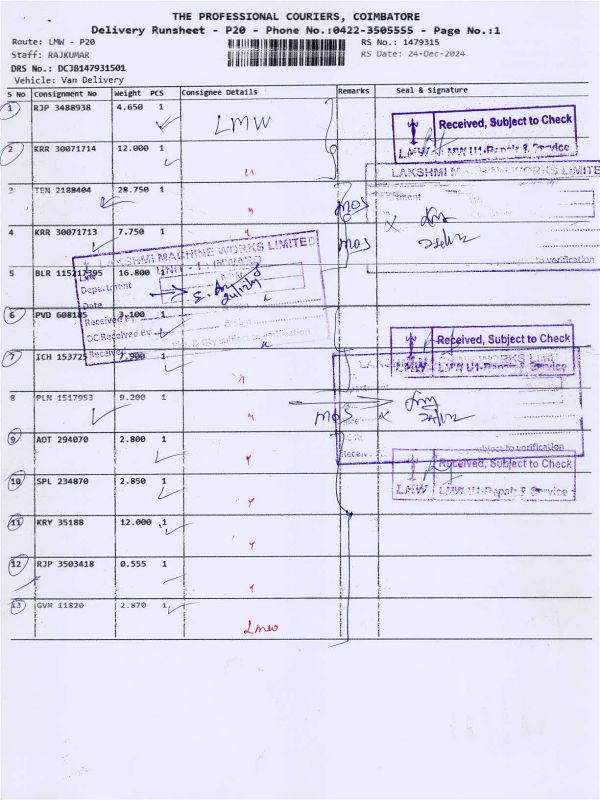 THE PROFESSIONAL COURIERS, COIMBATORE
Delivery Runsheet - P20 - Phone No.:0422-3505555 - Page No.:1
Route: LMW - P20
RS No.: 1479315
Staff: RAJKUMAR
RS Date: 24-Dec-2024
DRS No.: DCJB147931501
Vehicle: Van Delivery
S No Consignment No Weight PCS Consignee Details Remarks Seal & Signature
1 RJP 3488938 4.650 1 LMW
Received, Subject to Check
LMW LMW U1-Repair & Service
2 KRR 30071714 12.000 1
LAKSHMI MACHINE WORKS LIMITE
3 TEN 2188404 28.750 1 MOS
4 KRR 30071713 7.750 1 MOS
LAKSHMI MACHINE WORKS LIMITED
UNIT - 1 - INWARD
5 BLR 115217395 16.800 1
Department
Date
Received By
DC Received By
6 PVD 1
Received, Subject to Check
LMW LMW U1-Repair & Service
7 ICH 7.900 1
8 PLN 1517953 9.200 1 MOS
9 AOT 294070 2.800 1
subject to verification
Received, Subject to Check
10 SPL 234870 2.850 1
LMW LMW U1-Repair & Service
11 KRY 35188 12.000 1
12 RJP 3503418 0.555 1
13 GVR 11820 2.870 1
LMW